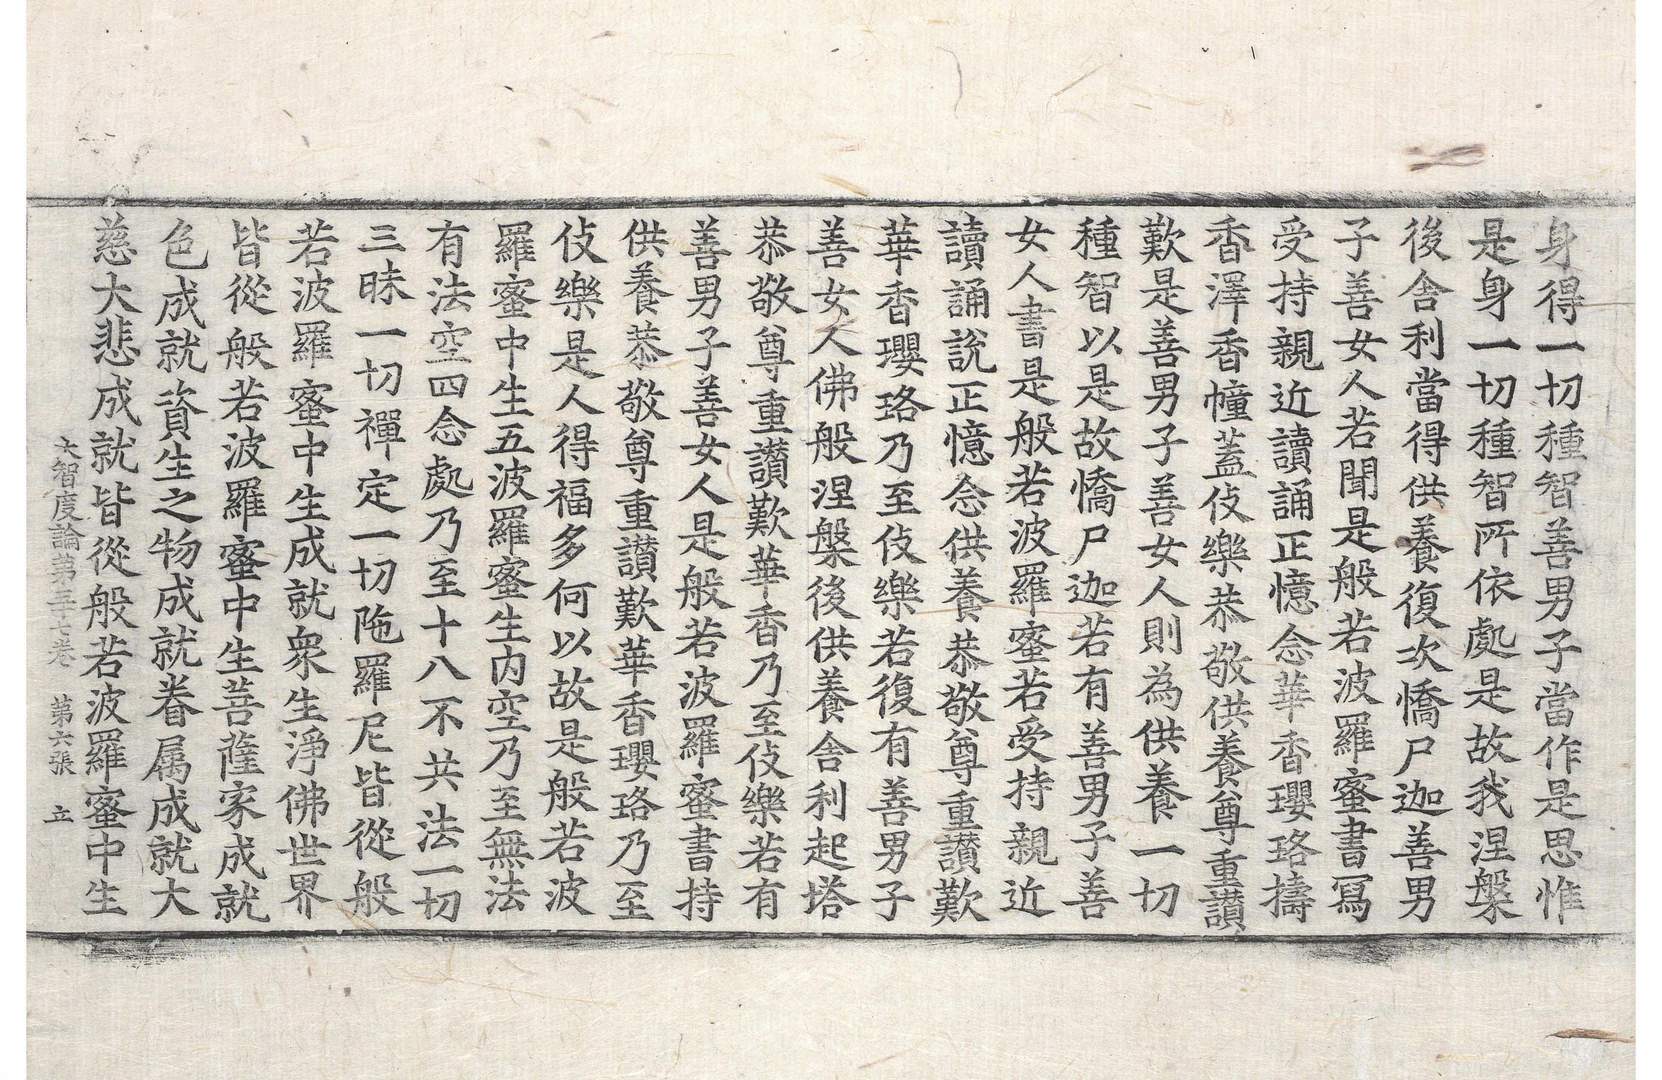 身得一切種智善男子當作是思惟
是身一切種智所依處是故我涅槃
後舍利當得供養復次憍尸迦善男
子善女人若聞是般若波羅蜜書寫
受持親近讀誦正憶念華香瓔珞擣
香澤香幢蓋伎樂恭敬供養尊重讃
歎是善男子善女人則為供養一切
種智以是故憍尸迦若有善男子善
女人書是般若波羅蜜若受持親近
讀誦說正憶念供養恭敬尊重讃歎
華香瓔珞乃至伎樂若復有善男子
善女人佛般涅槃後供養舍利起塔
恭敬尊重讃歎華香乃至伎樂若有
善男子善女人是般若波羅蜜書持
供養恭敬尊重讃歎華香瓔珞乃至
伎樂是人得福多何以故是般若波
羅蜜中生五波羅蜜生内空乃至無法
有法空四念處乃至十八不共法一切
三昧一切禪定一切陁羅尼皆從般
若波羅蜜中生成就衆生淨佛世界
皆從般若波羅蜜中生菩薩家成就
色成就資生之物成就眷属成就大
慈大悲成就皆從般若波羅蜜中生
大智度論第五十七卷 第六張 立